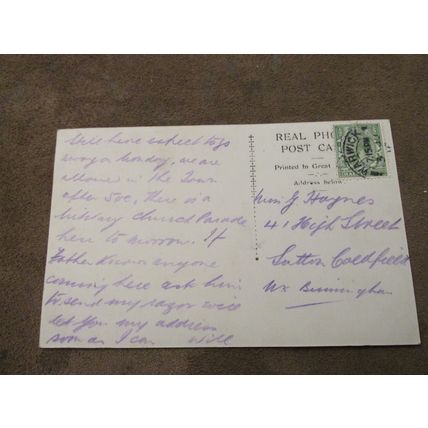 Still here expect to go
away on Monday, we are
allowed in the Town
after 5oc, there is a
Military Church Parade
here to morrow. If
Father knows anyone
coming here ask him
to send my razor will
let you my address
soon as I can Will
REAL PHO
POST CA
Printed in Great
Address below
Miss G Haynes
41 High Street
Sutton Coldfield
Nr Birmingham
WARWICK